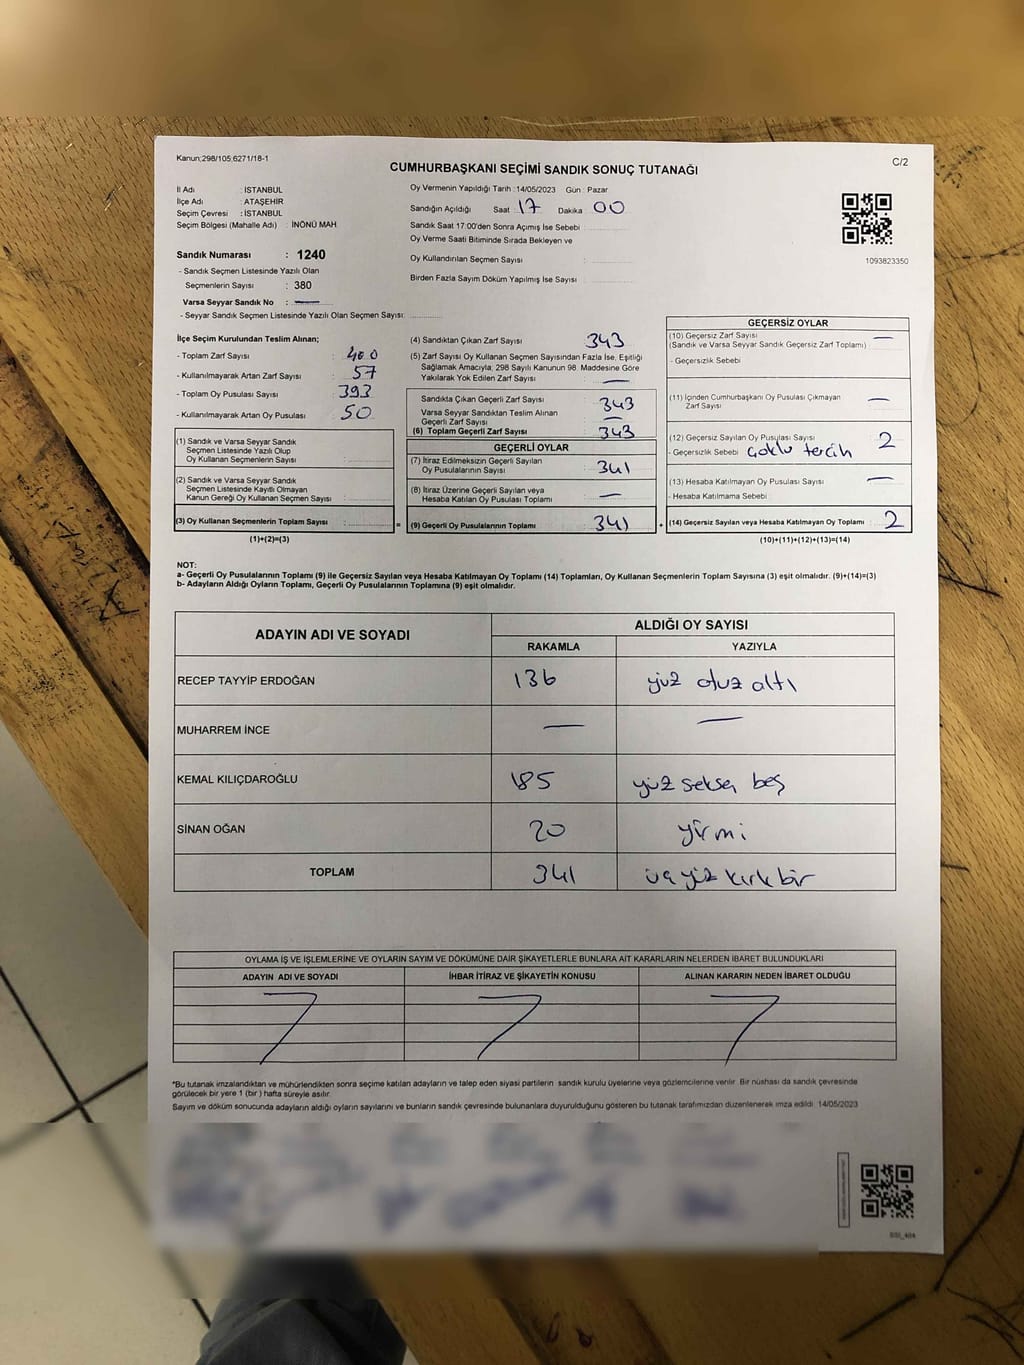 Kanun:298/105;6271/18-1
C/2
CUMHURBAŞKANI SEÇİMİ SANDIK SONUÇ TUTANAĞI
İl Adı : İSTANBUL
İlçe Adı : ATAŞEHİR
Seçim Çevresi : İSTANBUL
Seçim Bölgesi (Mahalle Adı) : İNÖNÜ MAH
Oy Vermenin Yapıldığı Tarih :14/05/2023 Gün : Pazar
Sandığın Açıldığı Saat 17 Dakika 00
Sandık Saat 17:00'den Sonra Açımış İse Sebebi :
Oy Verme Saati Bitiminde Sırada Bekleyen ve
Oy Kullandırılan Seçmen Sayısı :
Birden Fazla Sayım Döküm Yapılmış İse Sayısı :
1093823350
Sandık Numarası : 1240
- Sandık Seçmen Listesinde Yazılı Olan
Seçmenlerin Sayısı : 380
Varsa Seyyar Sandık No : —
- Seyyar Sandık Seçmen Listesinde Yazılı Olan Seçmen Sayısı:
İlçe Seçim Kurulundan Teslim Alınan;
- Toplam Zarf Sayısı : 400
- Kullanılmayarak Artan Zarf Sayısı : 57
- Toplam Oy Pusulası Sayısı : 393
- Kullanılmayarak Artan Oy Pusulası : 50
(1) Sandık ve Varsa Seyyar Sandık
Seçmen Listesinde Yazılı Olup
Oy Kullanan Seçmenlerin Sayısı :
(2) Sandık ve Varsa Seyyar Sandık
Seçmen Listesinde Kayıtlı Olmayan
Kanun Gereği Oy Kullanan Seçmen Sayısı :
(3) Oy Kullanan Seçmenlerin Toplam Sayısı :
(1)+(2)=(3)
(4) Sandıktan Çıkan Zarf Sayısı : 343
(5) Zarf Sayısı Oy Kullanan Seçmen Sayısından Fazla İse, Eşitliği
Sağlamak Amacıyla; 298 Sayılı Kanunun 98. Maddesine Göre
Yakılarak Yok Edilen Zarf Sayısı : —
Sandıkta Çıkan Geçerli Zarf Sayısı : 343
Varsa Seyyar Sandıktan Teslim Alınan
Geçerli Zarf Sayısı : —
(6) Toplam Geçerli Zarf Sayısı : 343
GEÇERLİ OYLAR
(7) İtiraz Edilmeksizin Geçerli Sayılan
Oy Pusulalarının Sayısı : 341
(8) İtiraz Üzerine Geçerli Sayılan veya
Hesaba Katılan Oy Pusulası Toplamı : —
= (9) Geçerli Oy Pusulalarının Toplamı : 341
GEÇERSİZ OYLAR
(10) Geçersiz Zarf Sayısı : —
(Sandık ve Varsa Seyyar Sandık Geçersiz Zarf Toplamı)
- Geçersizlik Sebebi :
(11) İçinden Cumhurbaşkanı Oy Pusulası Çıkmayan
Zarf Sayısı : —
(12) Geçersiz Sayılan Oy Pusulası Sayısı : 2
- Geçersizlik Sebebi : çoklu tercih
(13) Hesaba Katılmayan Oy Pusulası Sayısı : —
- Hesaba Katılmama Sebebi :
+ (14) Geçersiz Sayılan veya Hesaba Katılmayan Oy Toplamı : 2
(10)+(11)+(12)+(13)=(14)
NOT:
a- Geçerli Oy Pusulalarının Toplamı (9) ile Geçersiz Sayılan veya Hesaba Katılmayan Oy Toplamı (14) Toplamları, Oy Kullanan Seçmenlerin Toplam Sayısına (3) eşit olmalıdır. (9)+(14)=(3)
b- Adayların Aldığı Oyların Toplamı, Geçerli Oy Pusulalarının Toplamına (9) eşit olmalıdır.
ADAYIN ADI VE SOYADI
ALDIĞI OY SAYISI
RAKAMLA YAZIYLA
RECEP TAYYİP ERDOĞAN 136 yüz otuz altı
MUHARREM İNCE — —
KEMAL KILIÇDAROĞLU 185 yüz seksen beş
SİNAN OĞAN 20 yirmi
TOPLAM 341 üç yüz kırk bir
OYLAMA İŞ VE İŞLEMLERİNE VE OYLARIN SAYIM VE DÖKÜMÜNE DAİR ŞİKAYETLERLE BUNLARA AİT KARARLARIN NELERDEN İBARET BULUNDUKLARI
ADAYIN ADI VE SOYADI İHBAR İTİRAZ VE ŞİKAYETİN KONUSU ALINAN KARARIN NEDEN İBARET OLDUĞU
*Bu tutanak imzalandıktan ve mühürlendikten sonra seçime katılan adayların ve talep eden siyasi partilerin sandık kurulu üyelerine veya gözlemcilerine verilir. Bir nüshası da sandık çevresinde
görülecek bir yere 1 (bir ) hafta süreyle asılır.
Sayım ve döküm sonucunda adayların aldığı oyların sayılarını ve bunların sandık çevresinde bulunanlara duyurulduğunu gösteren bu tutanak tarafımızdan düzenlenerek imza edildi. 14/05/2023